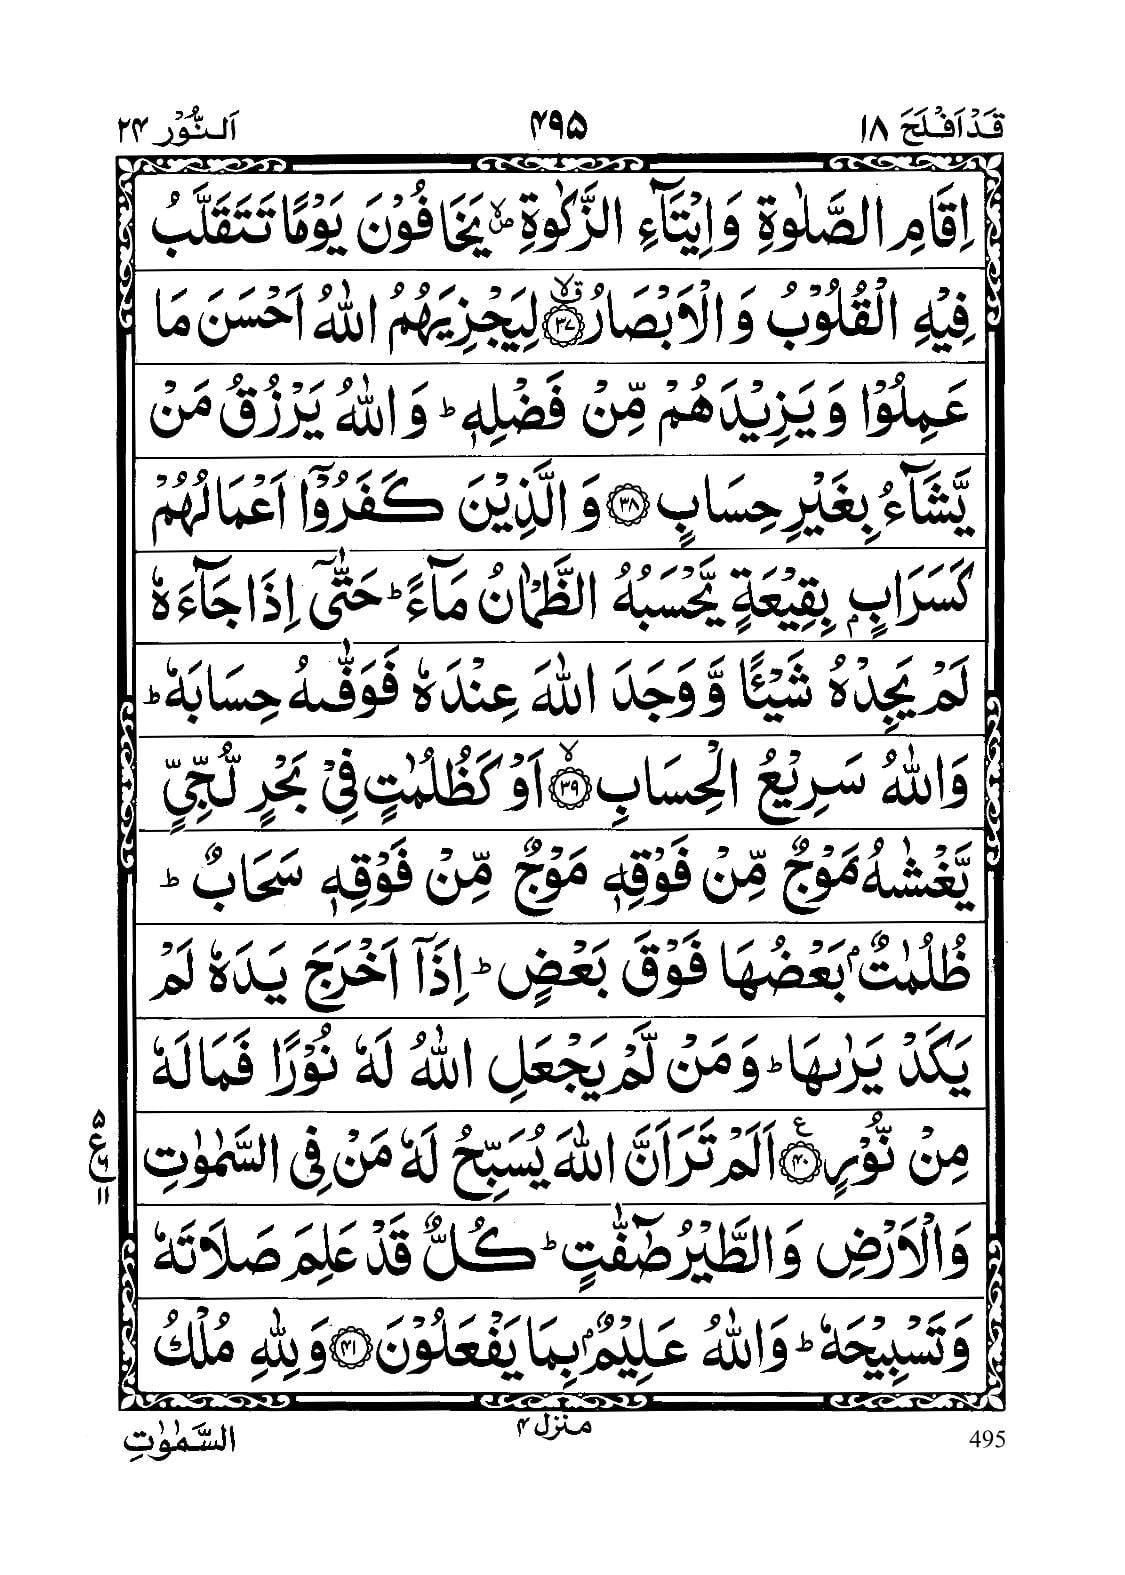 قَدْ اَفْلَحَ ١٨ ۴۹۵ اَلنُّوْر ٢۴
اِقَامِ الصَّلٰوةِ وَاِيْتَآءِ الزَّكٰوةِ ۙ يَخَافُوْنَ يَوْمًا تَتَقَلَّبُ
فِيْهِ الْقُلُوْبُ وَالْاَبْصَارُ ۙ ﴿۳۷﴾ لِيَجْزِيَهُمُ اللّٰهُ اَحْسَنَ مَا
عَمِلُوْا وَيَزِيْدَهُمْ مِّنْ فَضْلِهٖ ؕ وَاللّٰهُ يَرْزُقُ مَنْ
يَّشَآءُ بِغَيْرِ حِسَابٍ ﴿۳۸﴾ وَالَّذِيْنَ كَفَرُوْٓا اَعْمَالُهُمْ
كَسَرَابٍۭ بِقِيْعَةٍ يَّحْسَبُهُ الظَّمْاٰنُ مَآءً ؕ حَتّٰۤى اِذَا جَآءَهٗ
لَمْ يَجِدْهُ شَيْئًا وَّوَجَدَ اللّٰهَ عِنْدَهٗ فَوَفّٰىهُ حِسَابَهٗ ؕ
وَاللّٰهُ سَرِيْعُ الْحِسَابِ ۙ ﴿۳۹﴾ اَوْ كَظُلُمٰتٍ فِيْ بَحْرٍ لُّجِّيٍّ
يَّغْشٰىهُ مَوْجٌ مِّنْ فَوْقِهٖ مَوْجٌ مِّنْ فَوْقِهٖ سَحَابٌ ؕ
ظُلُمٰتٌۢ بَعْضُهَا فَوْقَ بَعْضٍ ؕ اِذَآ اَخْرَجَ يَدَهٗ لَمْ
يَكَدْ يَرٰىهَا ؕ وَمَنْ لَّمْ يَجْعَلِ اللّٰهُ لَهٗ نُوْرًا فَمَا لَهٗ
مِنْ نُّوْرٍ ﴿۴۰﴾ ع اَلَمْ تَرَ اَنَّ اللّٰهَ يُسَبِّحُ لَهٗ مَنْ فِى السَّمٰوٰتِ
۵ ع ۶ ١١
وَالْاَرْضِ وَالطَّيْرُ صٰٓفّٰتٍ ؕ كُلٌّ قَدْ عَلِمَ صَلَاتَهٗ
وَتَسْبِيْحَهٗ ؕ وَاللّٰهُ عَلِيْمٌۢ بِمَا يَفْعَلُوْنَ ﴿۴۱﴾ وَلِلّٰهِ مُلْكُ
495 منزل ۴ السَّمٰوٰتِ